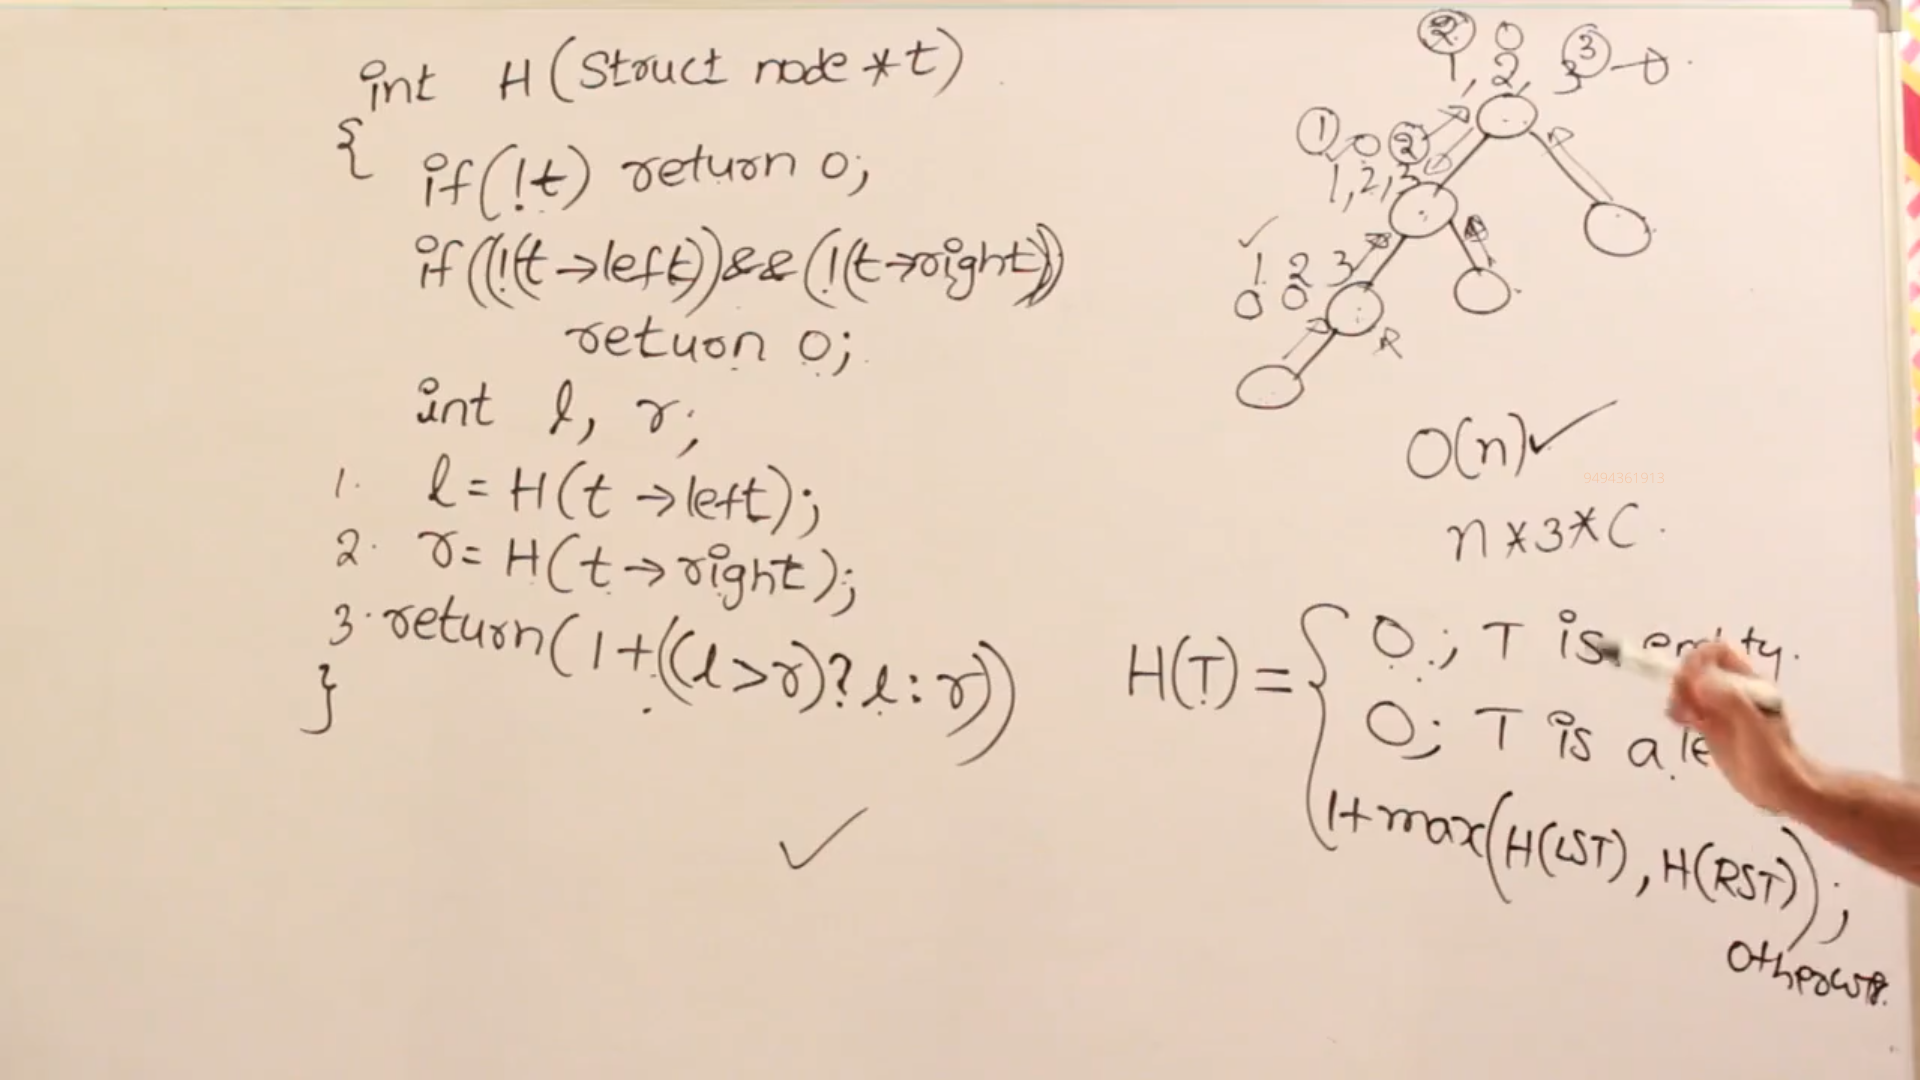 int H(Struct node *t)
{
if(!t) return 0;
if((!(t→left))&&(!(t→right)))
return 0;
int l, r;
1. l = H(t→left);
2. r = H(t→right);
3. return(1+((l>r)?l:r))
}
2 0 3
1, 2, 3
1 0 2
1, 2, 3
1 2 3
0 0
R
O(n)✓
9494361913
n*3*C.
H(T) = { 0; T is empty.
0; T is a le
1+max(H(LST), H(RST));
Otherwise